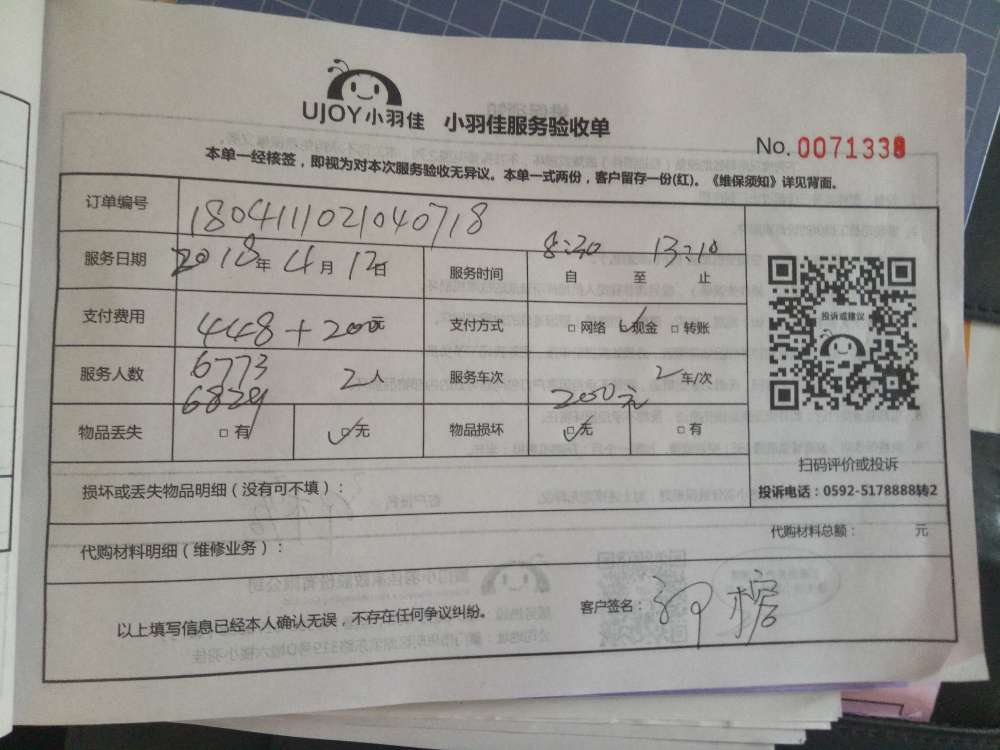 UJOY小羽佳 小羽佳服务验收单
No. 0071338
本单一经核签，即视为对本次服务验收无异议。本单一式两份，客户留存一份(红)。《维保须知》详见背面。
订单编号 1804111021040718
服务日期 2018年4月12日 服务时间 8:30自 至 13:10止
支付费用 448+200元 支付方式 □网络 ☑现金 □转账
服务人数 6773 6829 2人 服务车次 2车/次
200元
物品丢失 □有 ☑无 物品损坏 ☑无 □有
投诉或建议
扫码评价或投诉
投诉电话：0592-5178888转2
损坏或丢失物品明细（没有可不填）：
代购材料明细（维修业务）： 代购材料总额： 元
以上填写信息已经本人确认无误，不存在任何争议纠纷。 客户签名：